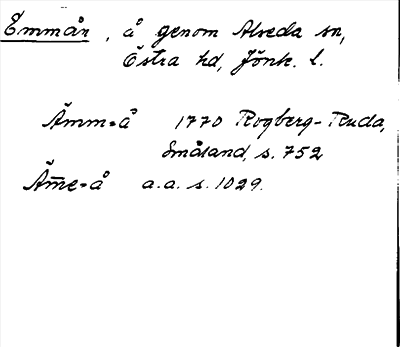 Emmån, å genom Alseda sn,
Östra hd, Jönk. l.
Ämm=å 1770 Rogberg-Ruda,
Småland, s. 752
Äm̅e=å a.a. s. 1029.